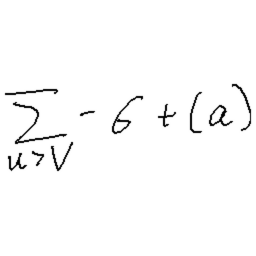 \sum_{u>V} - 6 + (a)